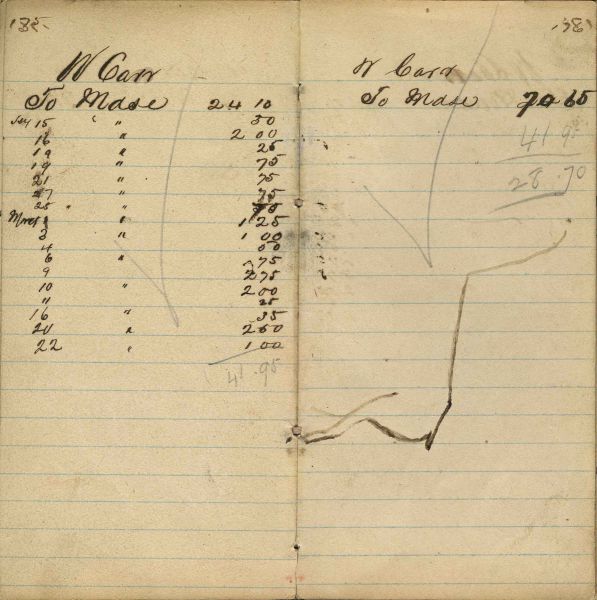 W Carr
To Mdse 24 10
15 " " 50
16 " 2 00
19 " 25
19 " 75
21 " 75
27 " 75
25 " "
March 1 " 1 25
3 " 1 00
4 50
6 " 75
9 2 75
10 " 2 00
11 25
16 " 35
20 " 2 50
22 " 1 00
41.95
W Carr
To Mdse 70 65
41 95
28.70